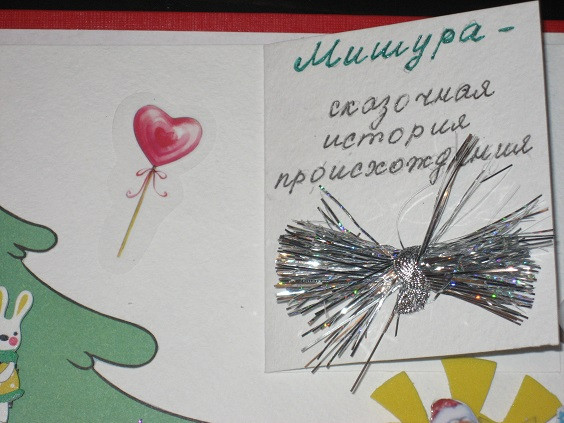 Мишура -
сказочная
история
происхождения